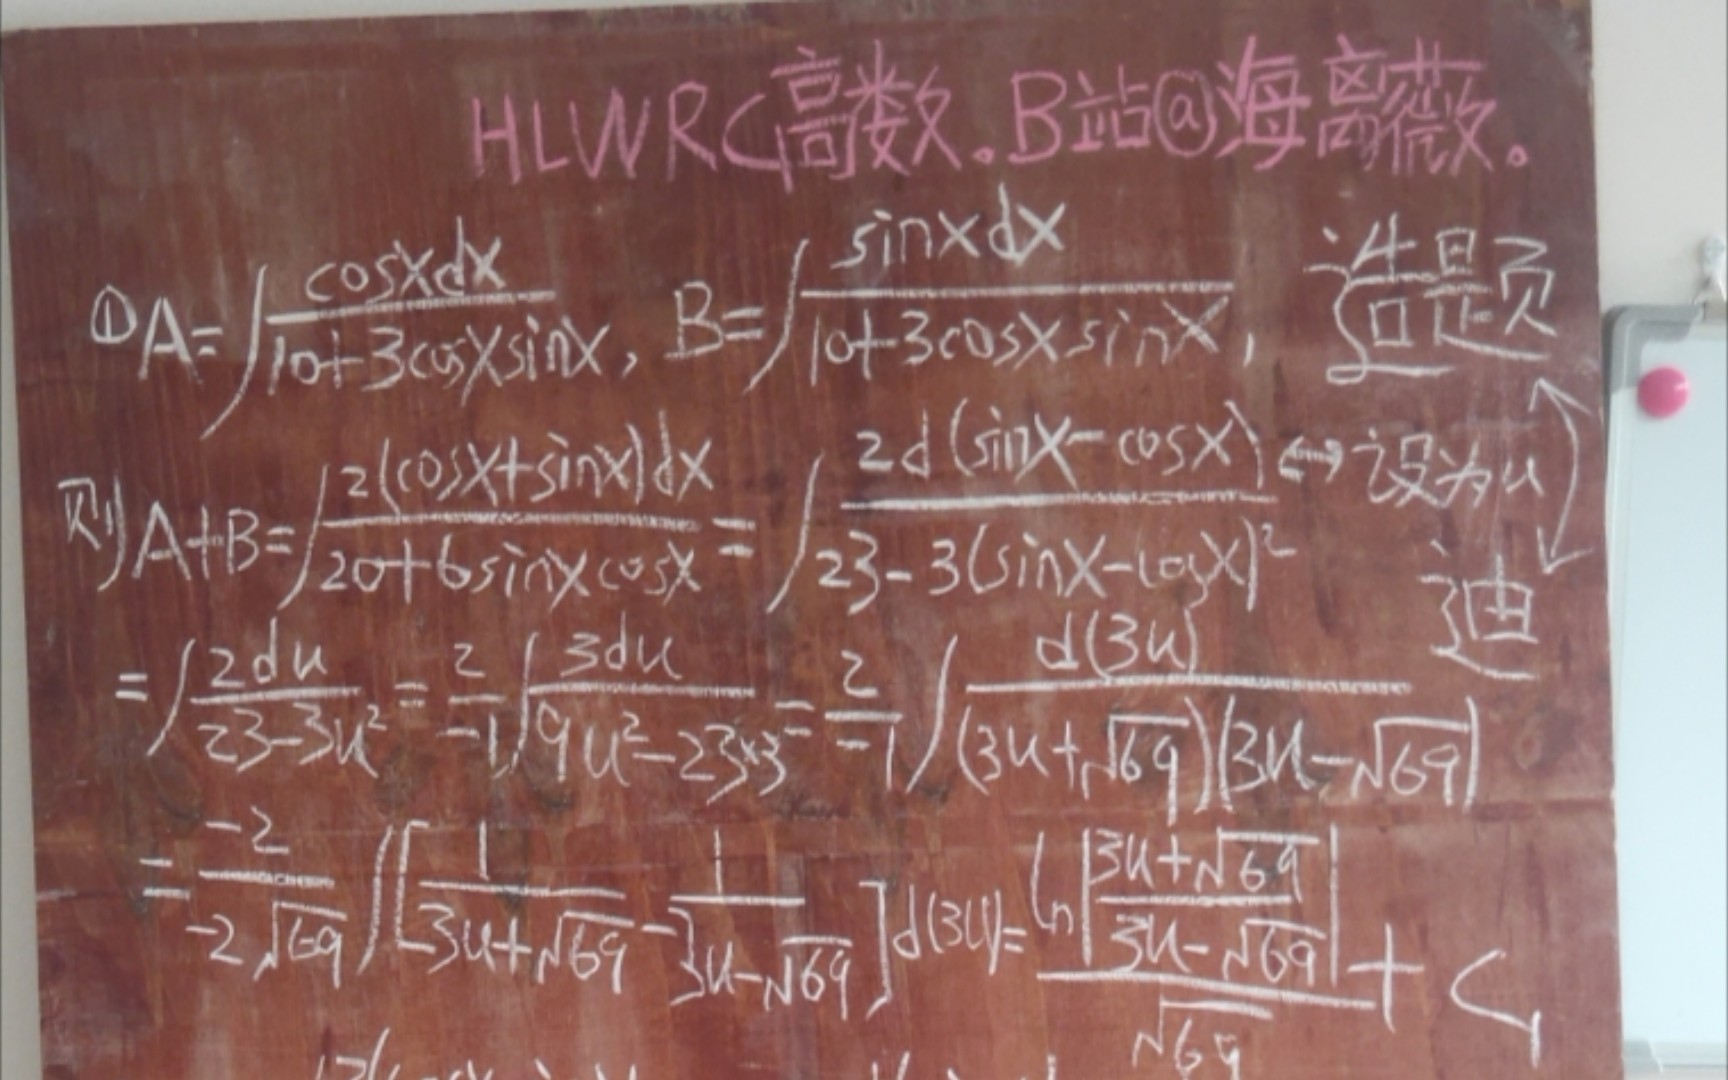 HLWRC高数。B站@海离薇。
①A=∫cosxdx/(10+3cosxsinx), B=∫sinxdx/(10+3cosxsinx), 造题
则A+B=∫2(cosx+sinx)dx/(20+6sinxcosx)=∫2d(sinx-cosx)/(23-3(sinx-cosx)²)↔设为u
迪
=∫2du/(23-3u²)=2/(-1)∫3du/(9u²-23×3)=2/(-1)∫d(3u)/((3u+√69)(3u-√69))
=-2/(-2√69)∫[1/(3u+√69)-1/(3u-√69)]d(3u)=ln|(3u+√69)/(3u-√69)|/√69+C₁